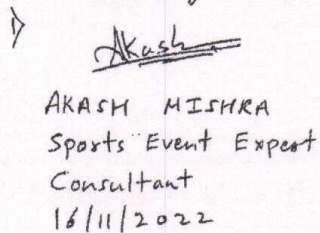 1)
Akash
AKASH MISHRA
Sports Event Expert
Consultant
16/11/2022